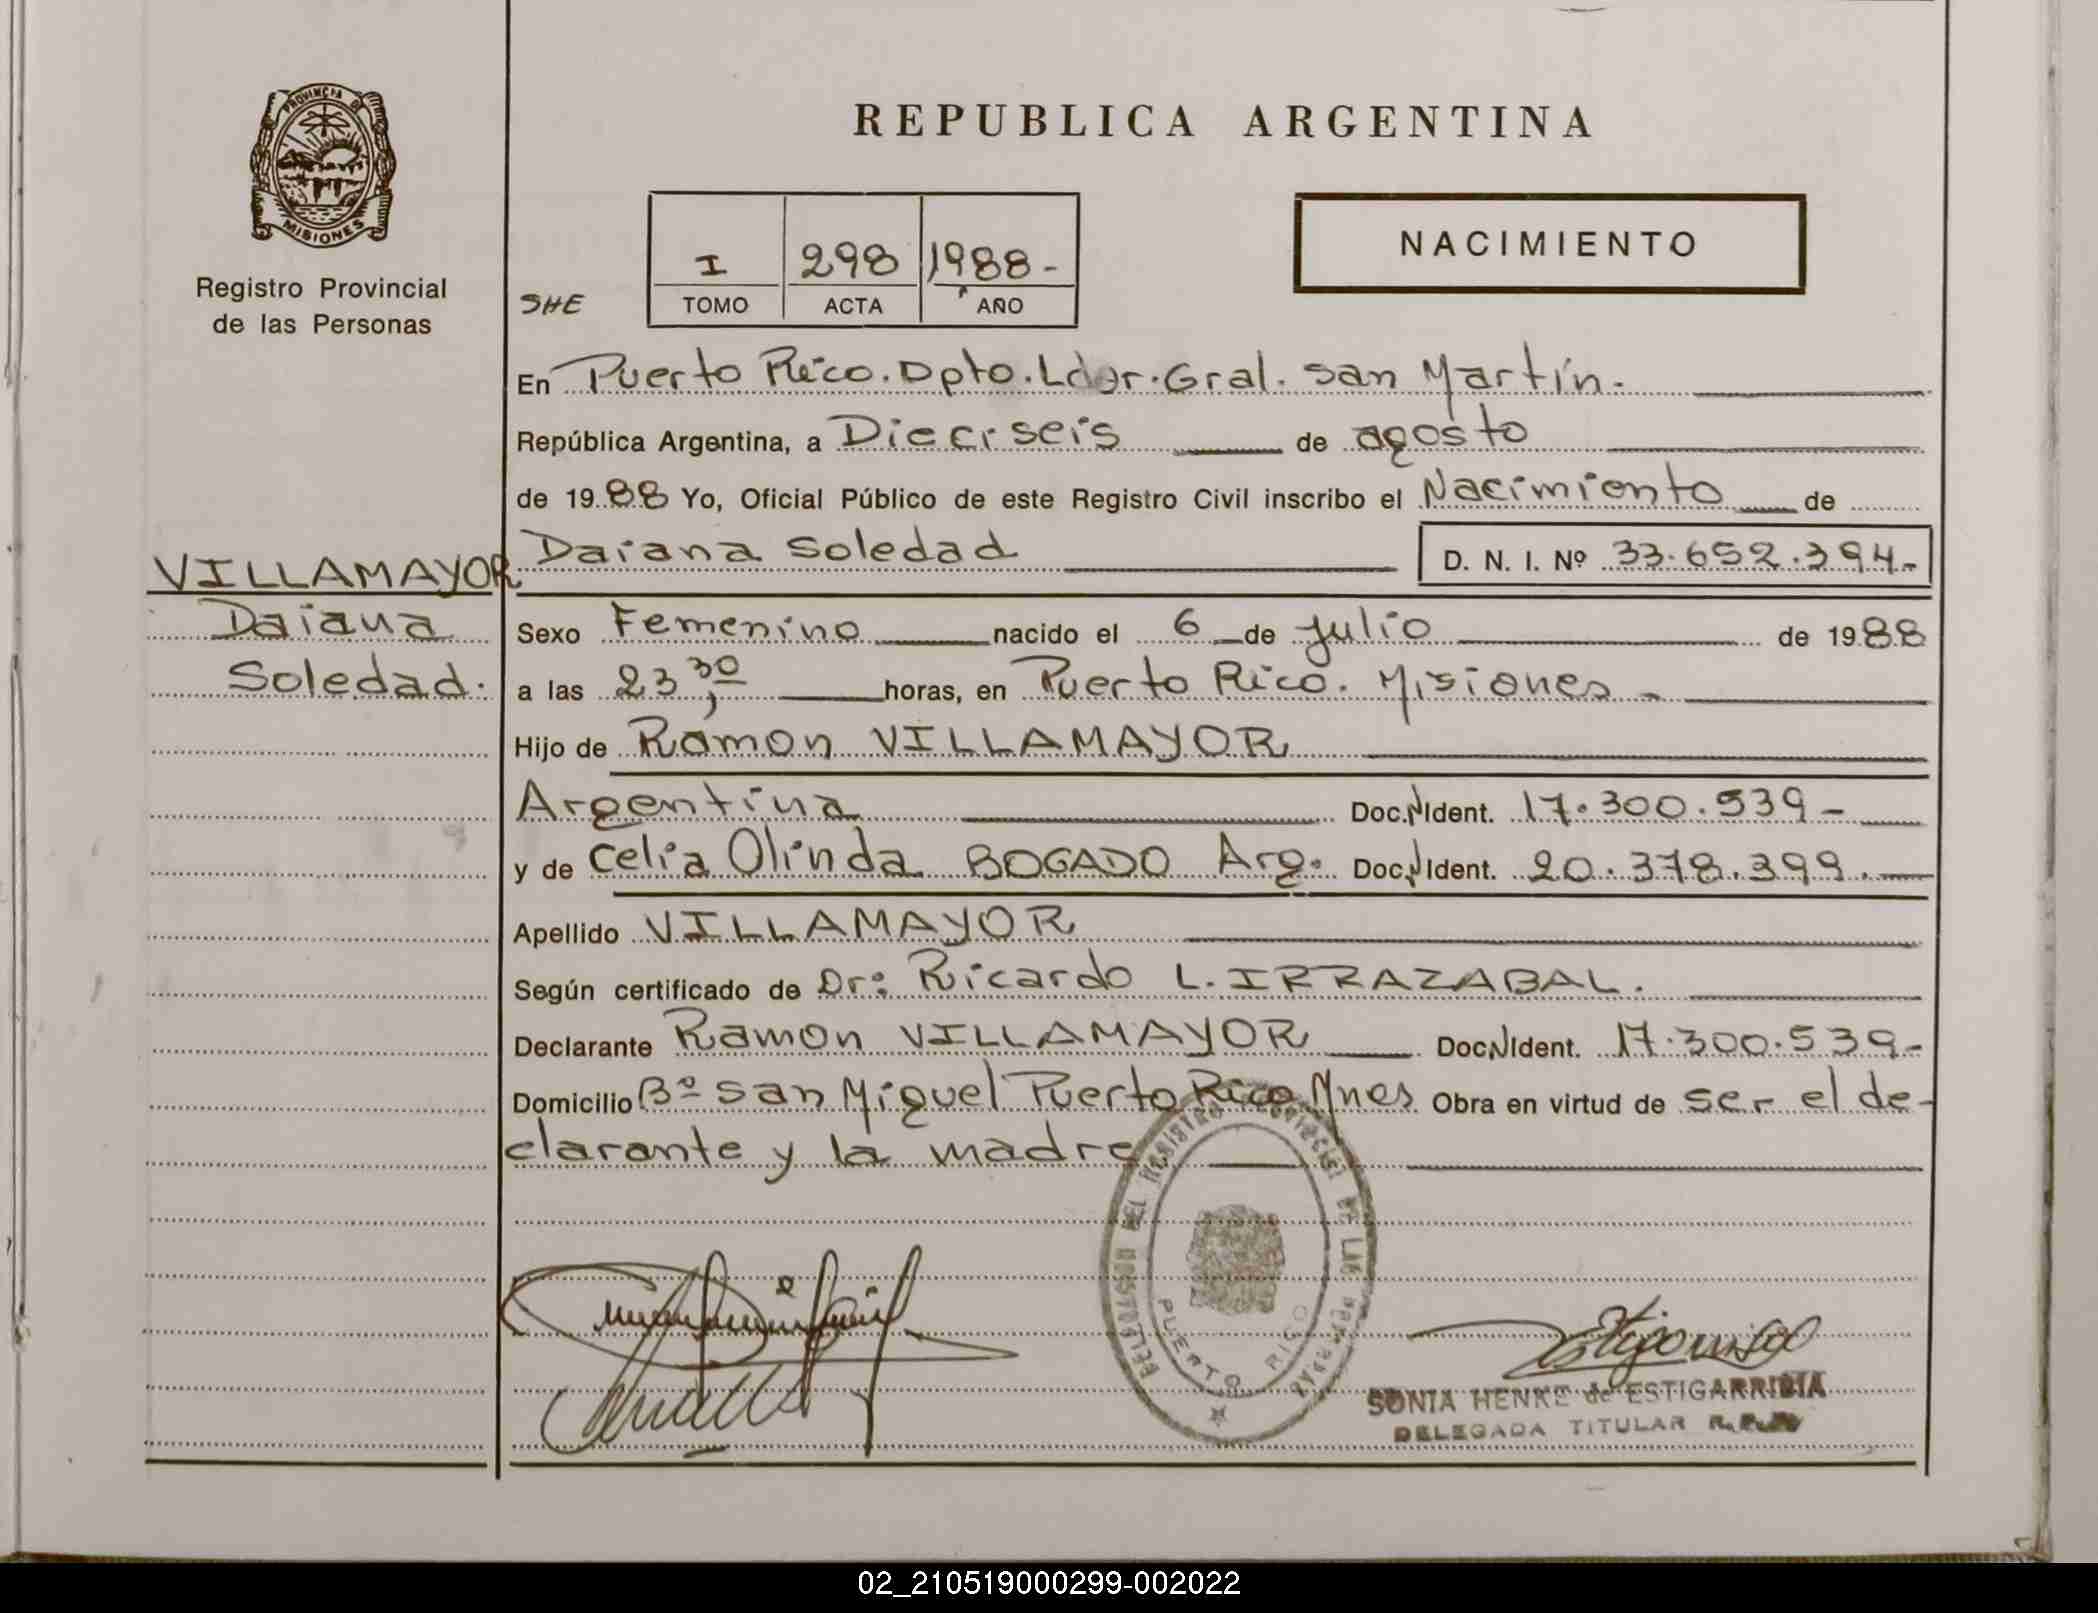 PROVINCIA DE
MISIONES
Registro Provincial
de las Personas
VILLAMAYOR
Daiana
Soledad.
REPUBLICA ARGENTINA
NACIMIENTO
SHE
I 298 1988-
TOMO ACTA AÑO
En Puerto Rico. Dpto. Ldor. Gral. San Martín.
República Argentina, a Dieciseis de agosto
de 1988 Yo, Oficial Público de este Registro Civil inscribo el Nacimiento de
Daiana Soledad D. N. I. Nº 33.652.394-
Sexo Femenino nacido el 6 de julio de 1988
a las 23,30 horas, en Puerto Rico. Misiones-
Hijo de Ramon VILLAMAYOR
Argentina Doc.NIdent. 17.300.539-
y de Celia Olinda BOGADO Arg. Doc.NIdent. 20.378.399.
Apellido VILLAMAYOR
Según certificado de Dr: Ricardo L. IRRAZABAL.
Declarante Ramon VILLAMAYOR Doc.NIdent. 17.300.539-
Domicilio Bº San Miguel Puerto Rico Mnes Obra en virtud de ser el de-
clarante y la madre
DEL REGISTRO PROVINCIAL DE LAS PERSONAS
PUERTO RICO
SONIA HENKE de ESTIGARRIBIA
DELEGADA TITULAR
02_210519000299-002022